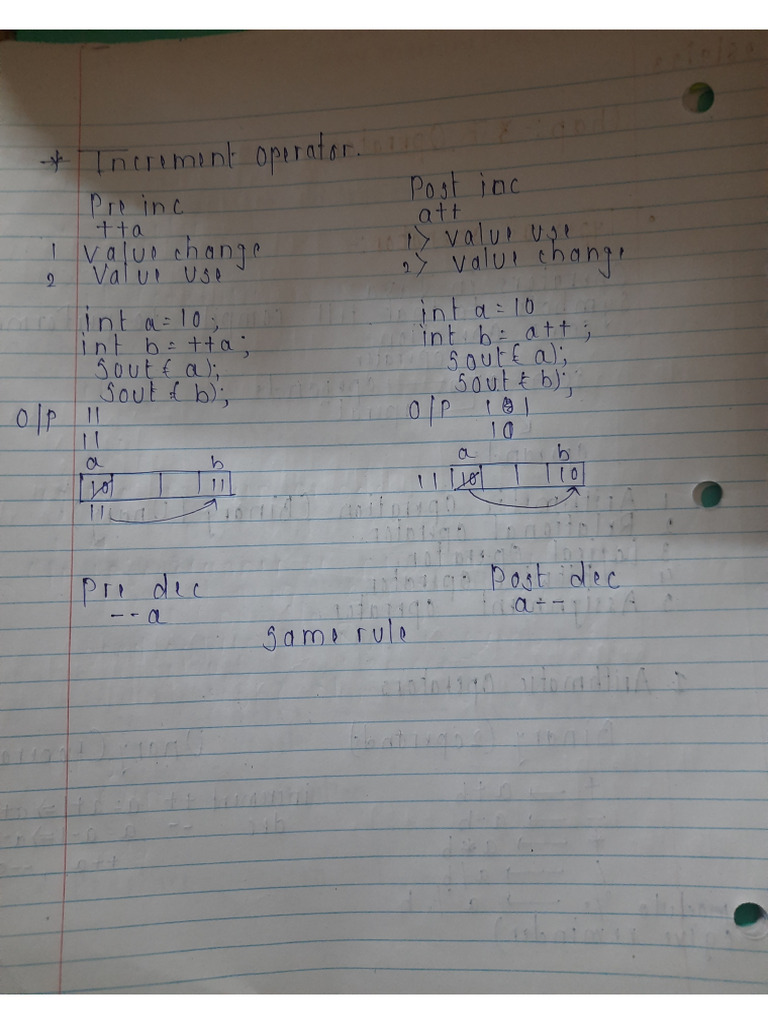 * Increment operator.
Pre inc
++a
1 Value change
2 Value use
int a = 10 ;
int b = ++a ;
Sout ( a);
Sout ( b);
O/P 11
11
a b
10 11
11
Post inc
a++
1> Value use
2> Value change
int a = 10
int b = a++ ;
Sout ( a);
Sout ( b);
O/P
10
a b
11 10 10
Pre dec
--a
Post dec
a--
Same rule